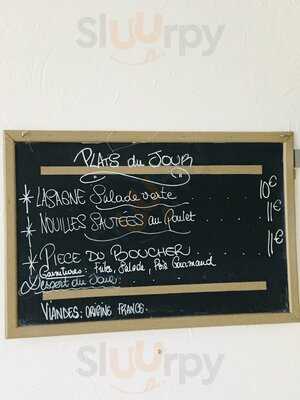 Sluurpy
PLATS du JOUR
* LASAGNE Salade verte . . . . . . 10€
* NOUILLES SAUTÉES au Poulet . . . 11€
* PIECE DU BOUCHER . . . . . 11€
Garnitures: Frites, Salade, Pois Gourmand
Dessert du Jour:
VIANDES: ORIGINE FRANCE
Sluurpy